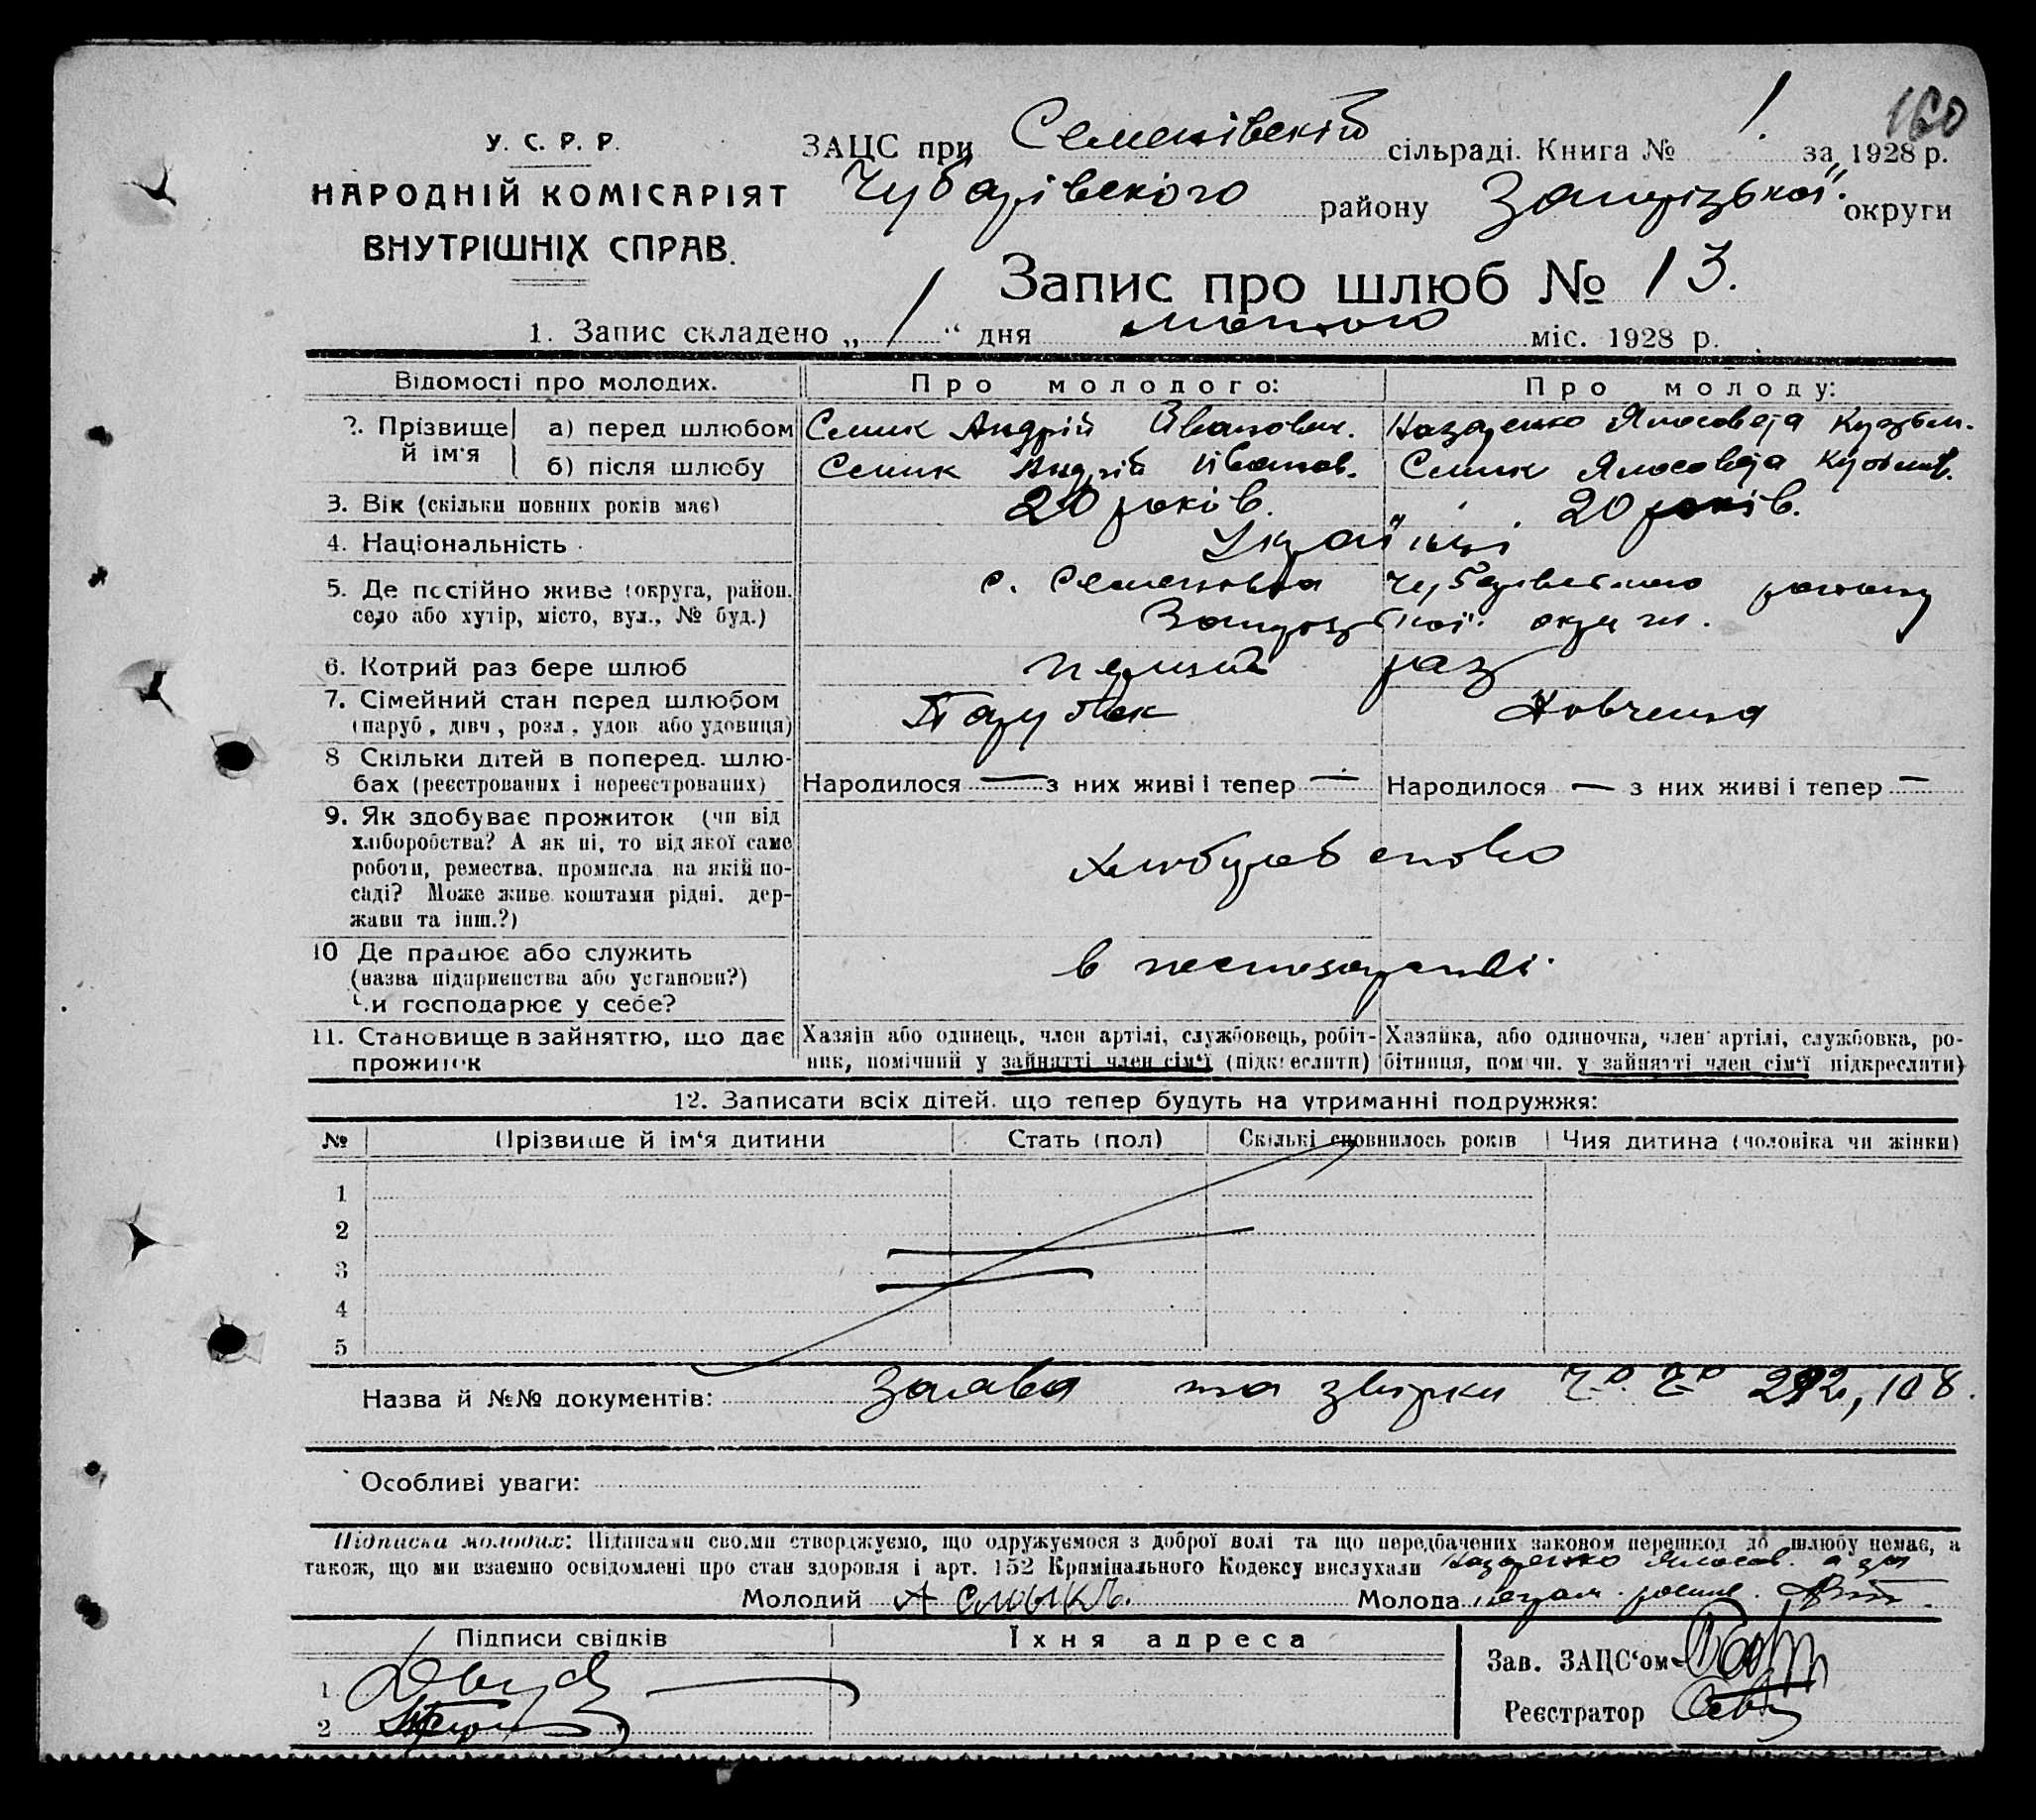 160
У. С. Р. Р.
НАРОДНІЙ КОМІСАРІЯТ
ВНУТРІШНІХ СПРАВ.
ЗАЦС при Семенівській сільраді. Книга № 1. за 1928 р.
Чубарівського району Запорізької округи
Запис про шлюб № 13.
1. Запис складено „ 1 “ дня лютого міс. 1928 р.
Відомості про молодих. Про молодого: Про молоду:
2. Прізвище й ім'я
а) перед шлюбом Андрій Іванович. Назаренко
б) після шлюбу Андрій Іванов.
3. Вік (скільки повних років має) 20 років. 20 років.
4. Національність Українці
5. Де постійно живе (округа, район, село або хутір, місто, вул., № буд.) с. Семенівка Чубарівського району
Запорізької округи.
6. Котрий раз бере шлюб перший раз
7. Сімейний стан перед шлюбом Парубок
(паруб., дівч., розл., удов. або удовиця)
8 Скільки дітей в поперед. шлюбах (реєстрованих і нереєстрованих) Народилося — з них живі і тепер — Народилося — з них живі і тепер —
9. Як здобуває прожиток (чи від
хліборобства? А як ні, то від якої саме
роботи, ремества, промисла, на якій по-
саді? Може живе коштами рідні, дер-
жави та інш.?)
10 Де працює або служить
(назва підприємства або установи?)
Чи господарює у себе?
11. Становище в зайняттю, що дає прожиток
Хазяїн або одинець, член артілі, службовець, робіт-
ник, помічний у зайнятті член сім'ї (підкреслити)
Хазяйка, або одиночка, член артілі, службовка, ро-
бітниця, помічн. у зайнятті член сім'ї підкреслити)
12. Записати всіх дітей, що тепер будуть на утриманні подружжя:
№ Прізвище й ім'я дитини Стать (пол) Скількі сповнилось років Чия дитина (чоловіка чи жінки)
1
2
3
4
5
Назва й №№ документів: Заява та
Особливі уваги:
Підписка молодих: Підписами своїми стверджуємо, що одружуємося з доброї волі та що передбачених законом перешкод до шлюбу немає, а
також, що ми взаємно освідомлені про стан здоровля і арт. 152 Кримінального Кодексу вислухали
Молодий Молода
Підписи свідків Їхня адреса
1
2
Зав. ЗАЦС'ом
Реєстратор